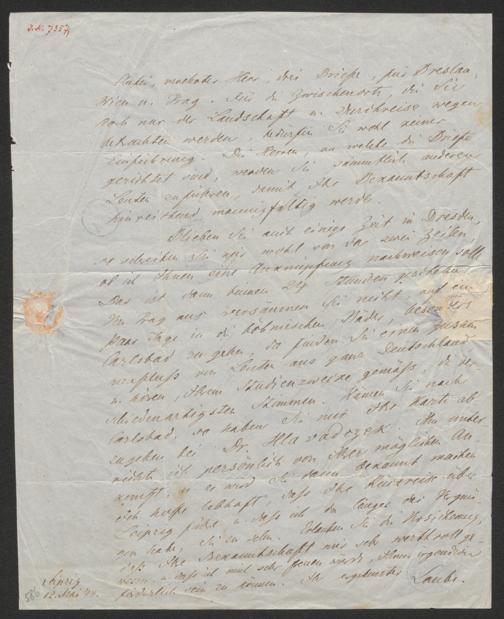 J.N. 7357
Hier, verehrter Herr, drei Briefe, für Breslau,
Wien u. Prag. Für die Zwischenorte, die Sie
doch nur der Landschaft u. wegen
betrachten werden, bedürfen Sie wohl keiner
Einführung. Die Herren, an welche die Briefe
gerichtet sind, werden Sie sämmtlich anderen
Leuten zuführen, damit Ihre Bekanntschaft
hinreichend mannigfaltig werde.
Blieben Sie auch einige Zeit in Dresden,
so schreiben Sie mir wohl von da zwei Zeilen
ob ich Ihnen eine nachweisen soll.
Das ist dann binnen Stunden geschehen.
Von Prag aus versäumen Sie nicht auf ein
paar Tage in die böhmischen Bäder, besonders
Carlsbad zu gehen, da finden Sie einen Zusam
menfluss von Leuten aus ganz Deutschland
u. hören, Ihrem Studienzwecke gemäss, die ver
schiedenartigsten Stimmen. Kämen Sie nach
Carlsbad, so haben Sie nur Ihre Karte ab
zugeben bei Dr Hlawaczek. Ihn unter
richte ich persönlich von Ihrer möglichen An
kunft, u. er wird Sie dann bekannt machen
Ich hoffe lebhaft, dass Ihre Rückreise über
Leipzig führt u. dass ich da länger das Vergnü
gen habe, Sie zu sehn. Erlauben Sie die Versicherung,
dass Ihre Bekanntschaft mir sehr werthvoll ge
wesen u. dass ich mich sehr freuen werde, Ihnen irgendwie
förderlich sein zu können. Ihr ergebenster
Laube.
Leipzig
12. Mai 44.